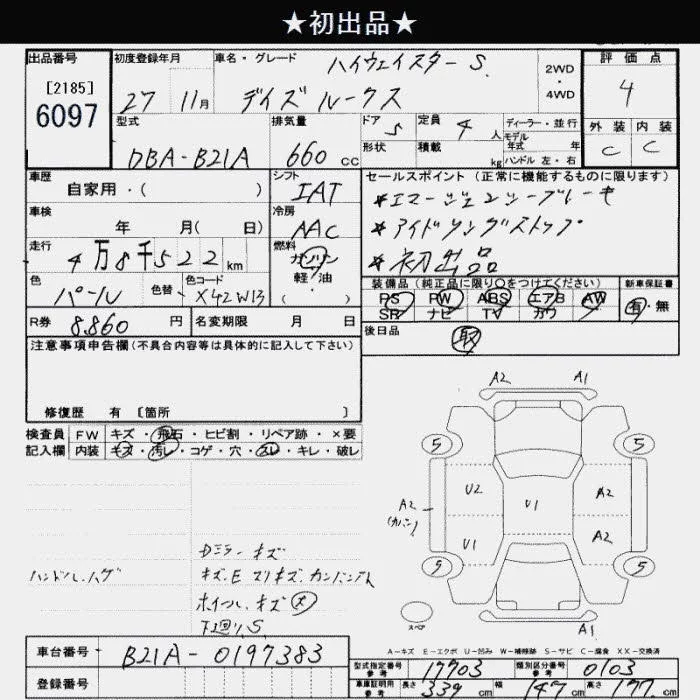 ★初出品★
出品番号
[2185]
6097
初度登録年月
27 11月
車名・グレード
ハイウェイスター S
デイズルークス
2WD
・
4WD
評価点
4
型式
DBA-B21A
排気量
660 CC
ドア
5
定員
4 人
ディーラー・並行
モデル
年式 年
外装 内装
C C
形状
積載
kg
ハンドル 左・右
車歴
自家用・( )
シフト
IAT
セールスポイント(正常に機能するものに限ります)
*エマージェンシーブレーキ
*アイドリングストップ
*初出品
車検
年 月( 日)
冷房
AAC
走行
4万8千522km
燃料
ガソリン
軽・油
・
( )
色
パール
色替
色コード
X42W13
装備品(純正品に限り○をつけてください)
新車保証書
PS PW ABS エアB AW
SR ナビ TV カワ
有・無
R券
8,860 円
名変期限 月 日
後日品
取
注意事項申告欄(不具合内容等は具体的に記入して下さい)
修復歴 有 〔箇所 〕
検査員
記入欄
FW キズ・飛石・ヒビ割・リペア跡・×要
内装 キズ・汚レ・コゲ・穴・スレ・キレ・破レ
ハンドルハゲ
Dミラーキズ
キズ.E スリキズ.カンバンアト
ホイールキズ 大
下廻りS
A2 A1
5 5
U2 U1 A2
A2
(カンバン)
U1 A2
5 5
スペア
A1
A-キズ E-エクボ U-凹み W-補修跡 S-サビ C-腐食 XX-交換済
車台番号
B21A-0197383
登録番号
型式指定番号
参考
17703
類別区分番号
参考
0103
車庫証明用
参考
長さ 339 cm
幅 147 cm
高さ 177 cm